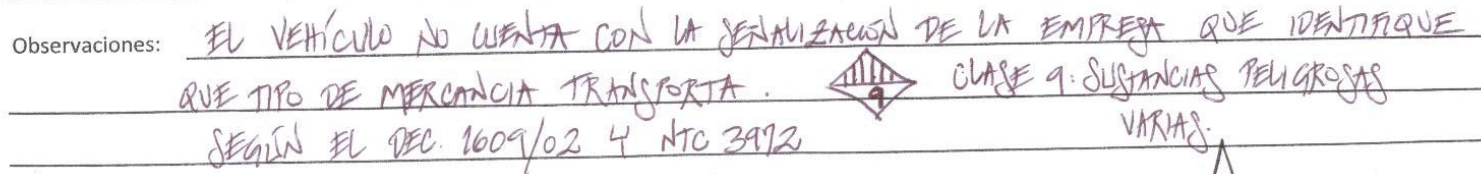 Observaciones: EL VEHÍCULO NO CUENTA CON LA SEÑALIZACIÓN DE LA EMPRESA QUE IDENTIFIQUE
QUE TIPO DE MERCANCIA TRANSPORTA. 9 CLASE 9: SUSTANCIAS PELIGROSAS
SEGÚN EL DEC. 1609/02 Y NTC 3972 VARIAS.